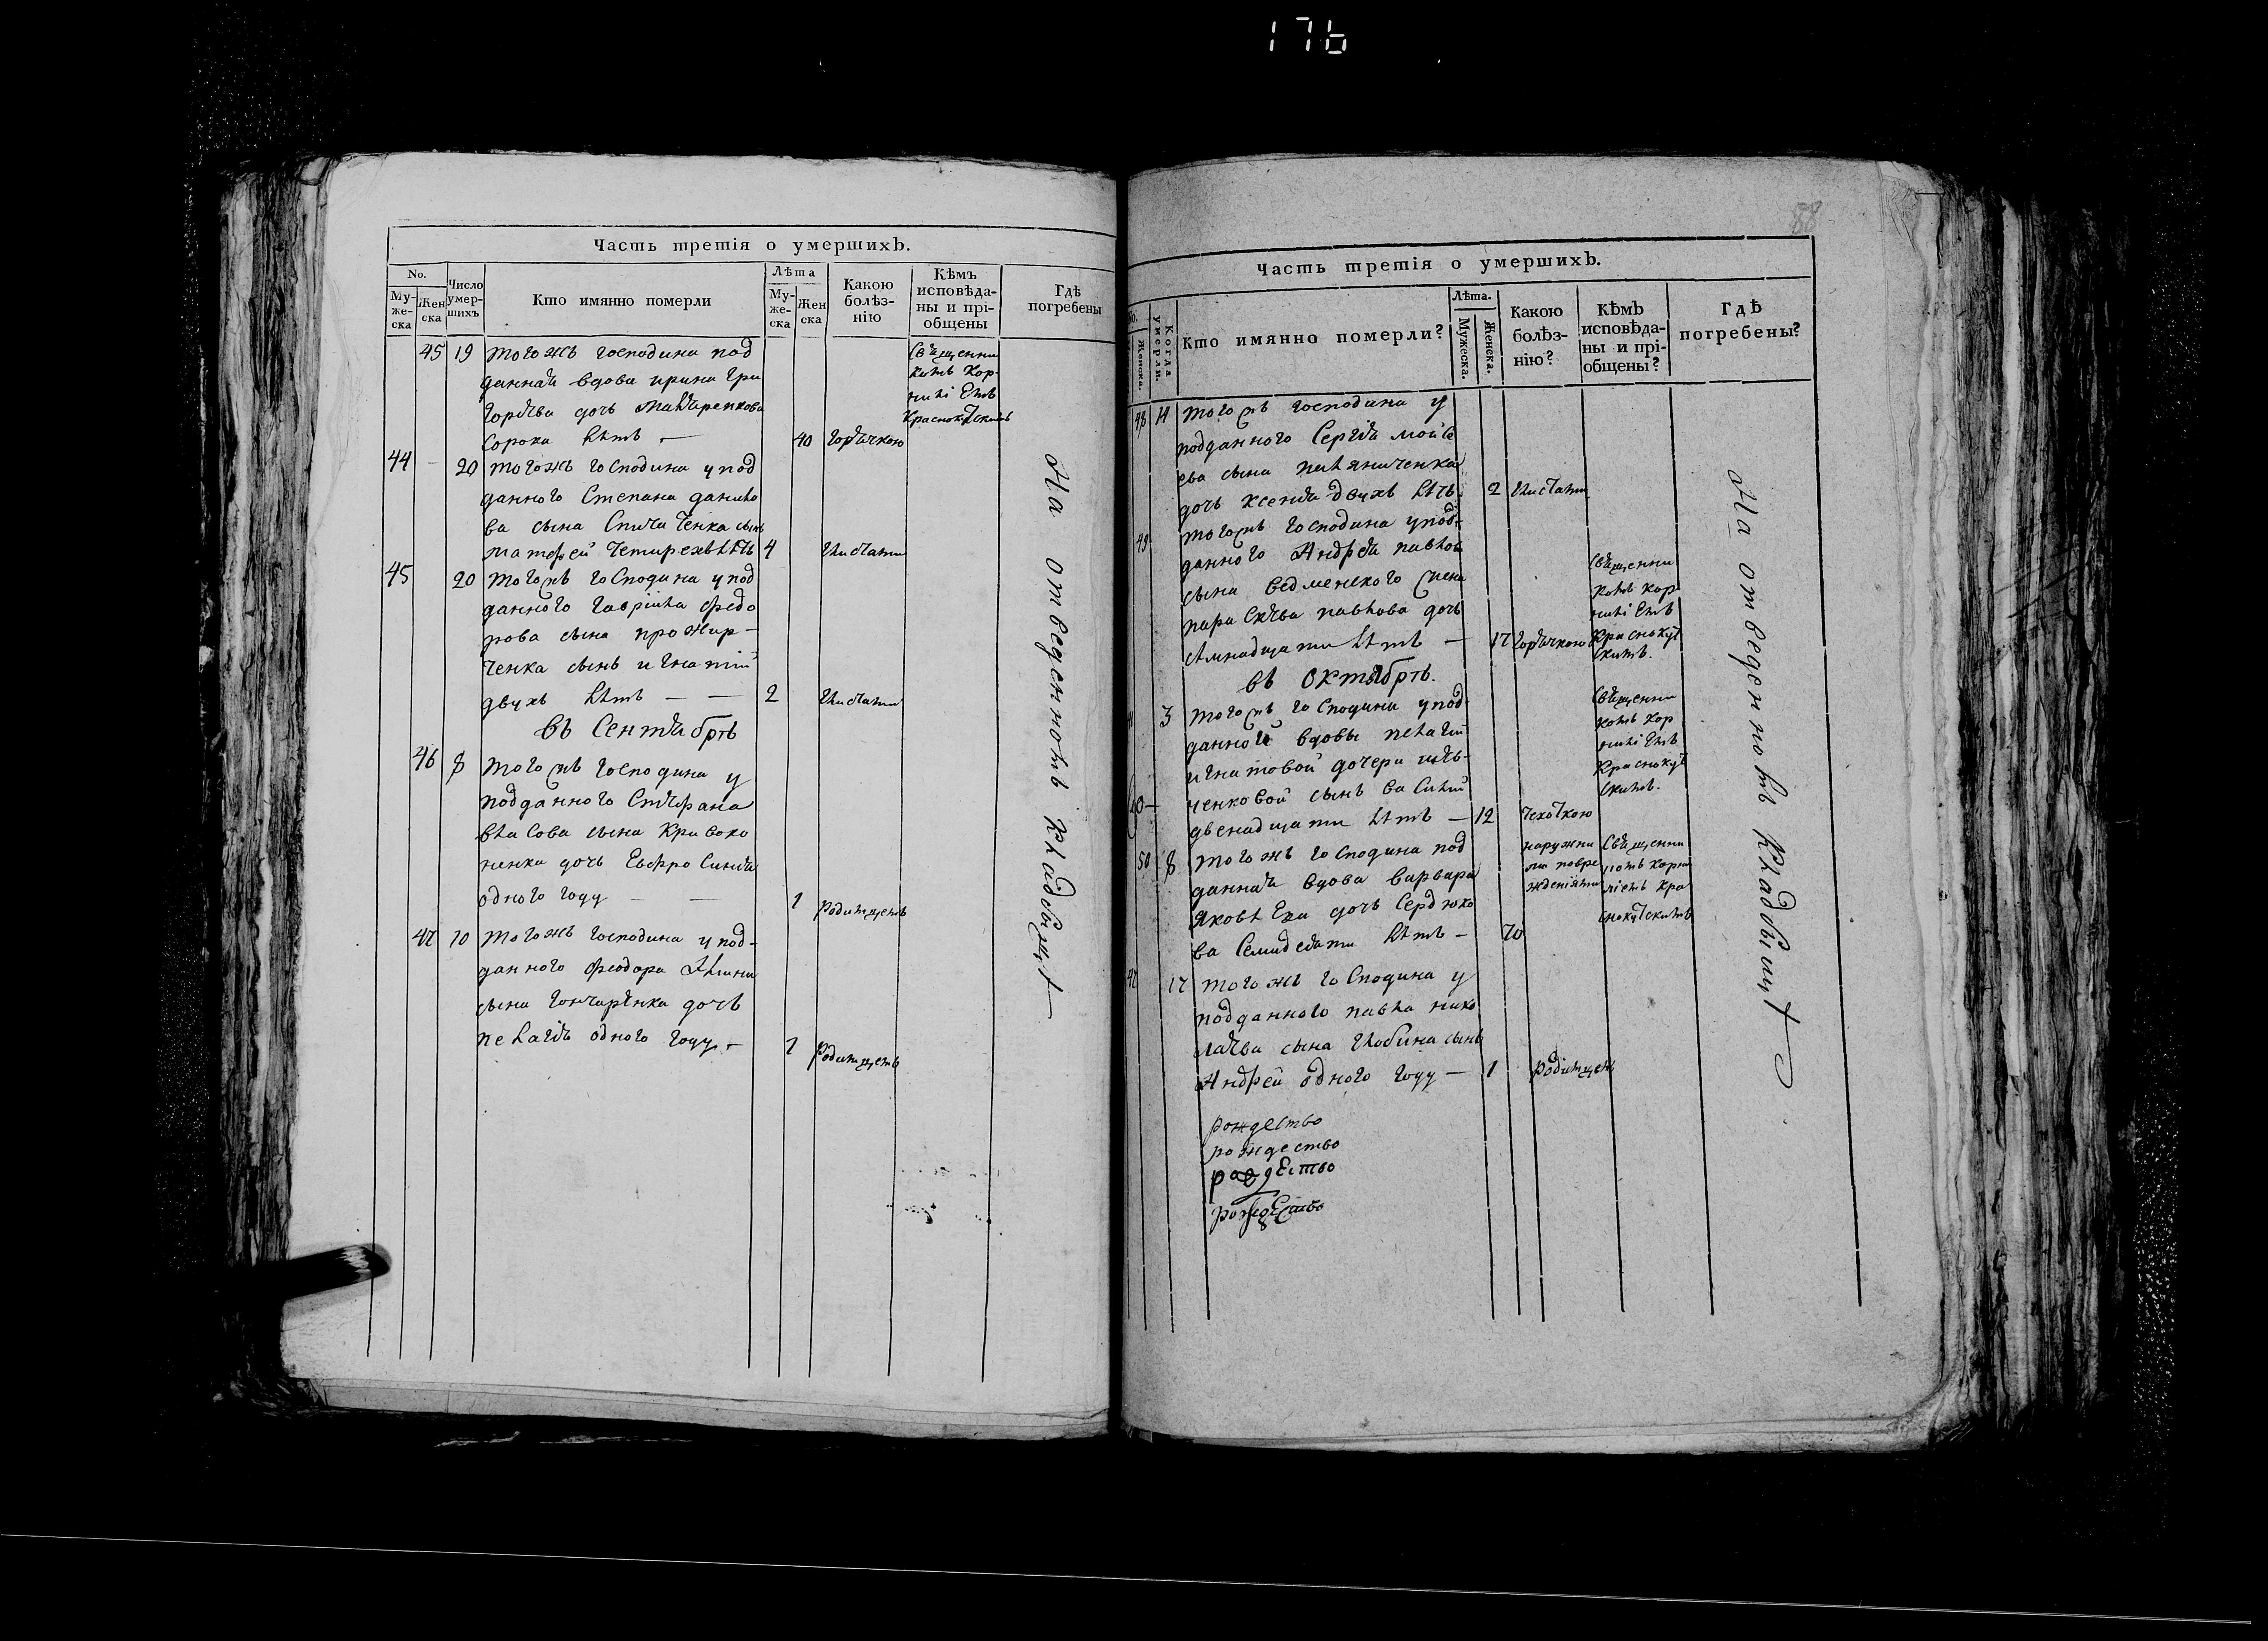 176
Часть третія о умершихъ.
No.
Му-
же-
ска
Жен
ска
Число
умер-
шихъ
Кто имянно померли
Лѣта
Му-
же-
ска
Жен
ска
Какою
болѣз-
нію
Кѣмъ
исповѣда-
ны и прі-
общены
Гдѣ
погребены
45 19 тогожъ господина под
данная вдова ирина гри
горьева дочь
сорока лѣтъ — 40 горячкою
Священни
комъ Кор
ниліемъ
Краснокутскимъ
44 — 20 тогожъ господина у под
данного Степана данило
ва сына Спичаченка сынъ
матфей четирехъ лѣтъ 4 глистами
45 20 тогожъ господина у под
данного гавріила федо
рова сына прожир-
ченка сынъ игнатій
двухъ лѣтъ — — 2 глистами
въ Сентябрѣ
46 8 тогожъ господина у
подданного Стефана
власова сына Кривоко
ненка дочь Евфросинія
одного году — — 1 родимцемъ
47 10 тогожъ господина у под-
данного феодора
сына гончаренка дочь
пелагія одного году — 1 родимцемъ
На отведенномъ кладбищѣ
88
Часть третія о умершихъ.
No.
Женска.
Когда
умерли.
Кто имянно померли?
Лѣта.
Мужеска.
Женска.
Какою
болѣз-
нію?
Кѣмъ
исповѣда-
ны и прі-
общены?
Гдѣ
погребены?
48 14 тогожъ господина у
подданного Сергія мойсе
ева сына
дочь ксенія двухъ лѣтъ 2 глистами
49 тогожъ господина у под-
данного Андрея павлова
сына Ведменского жена
параскева павлова дочь
семнадцати лѣтъ — 17 горячкою
Священни
комъ Кор
ниліемъ
Краснокут
скимъ.
въ октябрѣ.
3 тогожъ господина у под
данной вдовы пелагіи
игнатовой дочери
ченковой сынъ василій
двенадцати лѣтъ — 12 чехоткою
Священни
комъ Кор
ниліемъ
Краснокут
скимъ.
50 8 тогожъ господина под
данная вдова варвара
яковлева дочь Сердюко
ва семидесяти лѣтъ — 70
наружни
ми повре
жденіями
Священни
комъ Корни
ліемъ Кра
снокутскимъ
47 17 тогожъ господина у
подданного павла нико
лаева сына глобина сынъ
Андрей одного году — 1 родимцемъ
рождество
рождество
рождество
рождество
На отведенномъ кладбищѣ